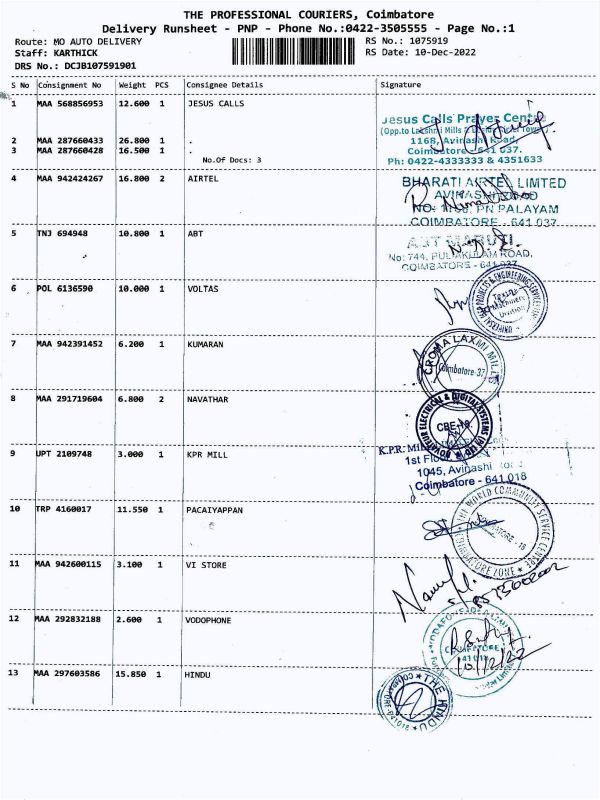 THE PROFESSIONAL COURIERS, Coimbatore
Delivery Runsheet - PNP - Phone No.:0422-3505555 - Page No.:1
Route: MO AUTO DELIVERY RS No.: 1075919
Staff: KARTHICK RS Date: 10-Dec-2022
DRS No.: DCJB107591901
S No Consignment No Weight PCS Consignee Details Signature
1 MAA 568856953 12.600 1 JESUS CALLS
Jesus Calls Prayer Centre
(Opp.to Lakshmi Mills
2 MAA 287660433 26.800 1 . 1168, Avinashi Road,
3 MAA 287660428 16.500 1 . Coimbatore - 641 037.
No.Of Docs: 3 Ph: 0422-4333333 & 4351633
4 MAA 942424267 16.800 2 AIRTEL BHARATI AIRTEL LIMITED
AVINASHI ROAD
PN PALAYAM
COIMBATORE - 641 037
5 TNJ 694948 10.800 1 ABT ABT MARUTI.
No: 744, PULIAKULAM ROAD,
COIMBATORE - 641 037
6 POL 6136590 10.000 1 VOLTAS
Textile
Machinery
Division
7 MAA 942391452 6.200 1 KUMARAN
LAXMI MILLS
Coimbatore-37
8 MAA 291719604 6.800 2 NAVATHAR
ELECTRICAL & DIGITAL SYSTEMS
CBE-18.
9 UPT 2109748 3.000 1 KPR MILL K.P.R.
1st Floor,
1045, Avinashi Road
Coimbatore - 641 018
10 TRP 4160017 11.550 1 PACAIYAPPAN
THE WORLD COMMUNITY SERVICE CENTRE
COIMBATORE - 18
COIMBATORE ZONE
11 MAA 942600115 3.100 1 VI STORE
12 MAA 292832188 2.600 1 VODOPHONE
COIMBATORE
641 018
10/12/22
13 MAA 297603586 15.850 1 HINDU
THE HINDU
COIMBATORE-641018